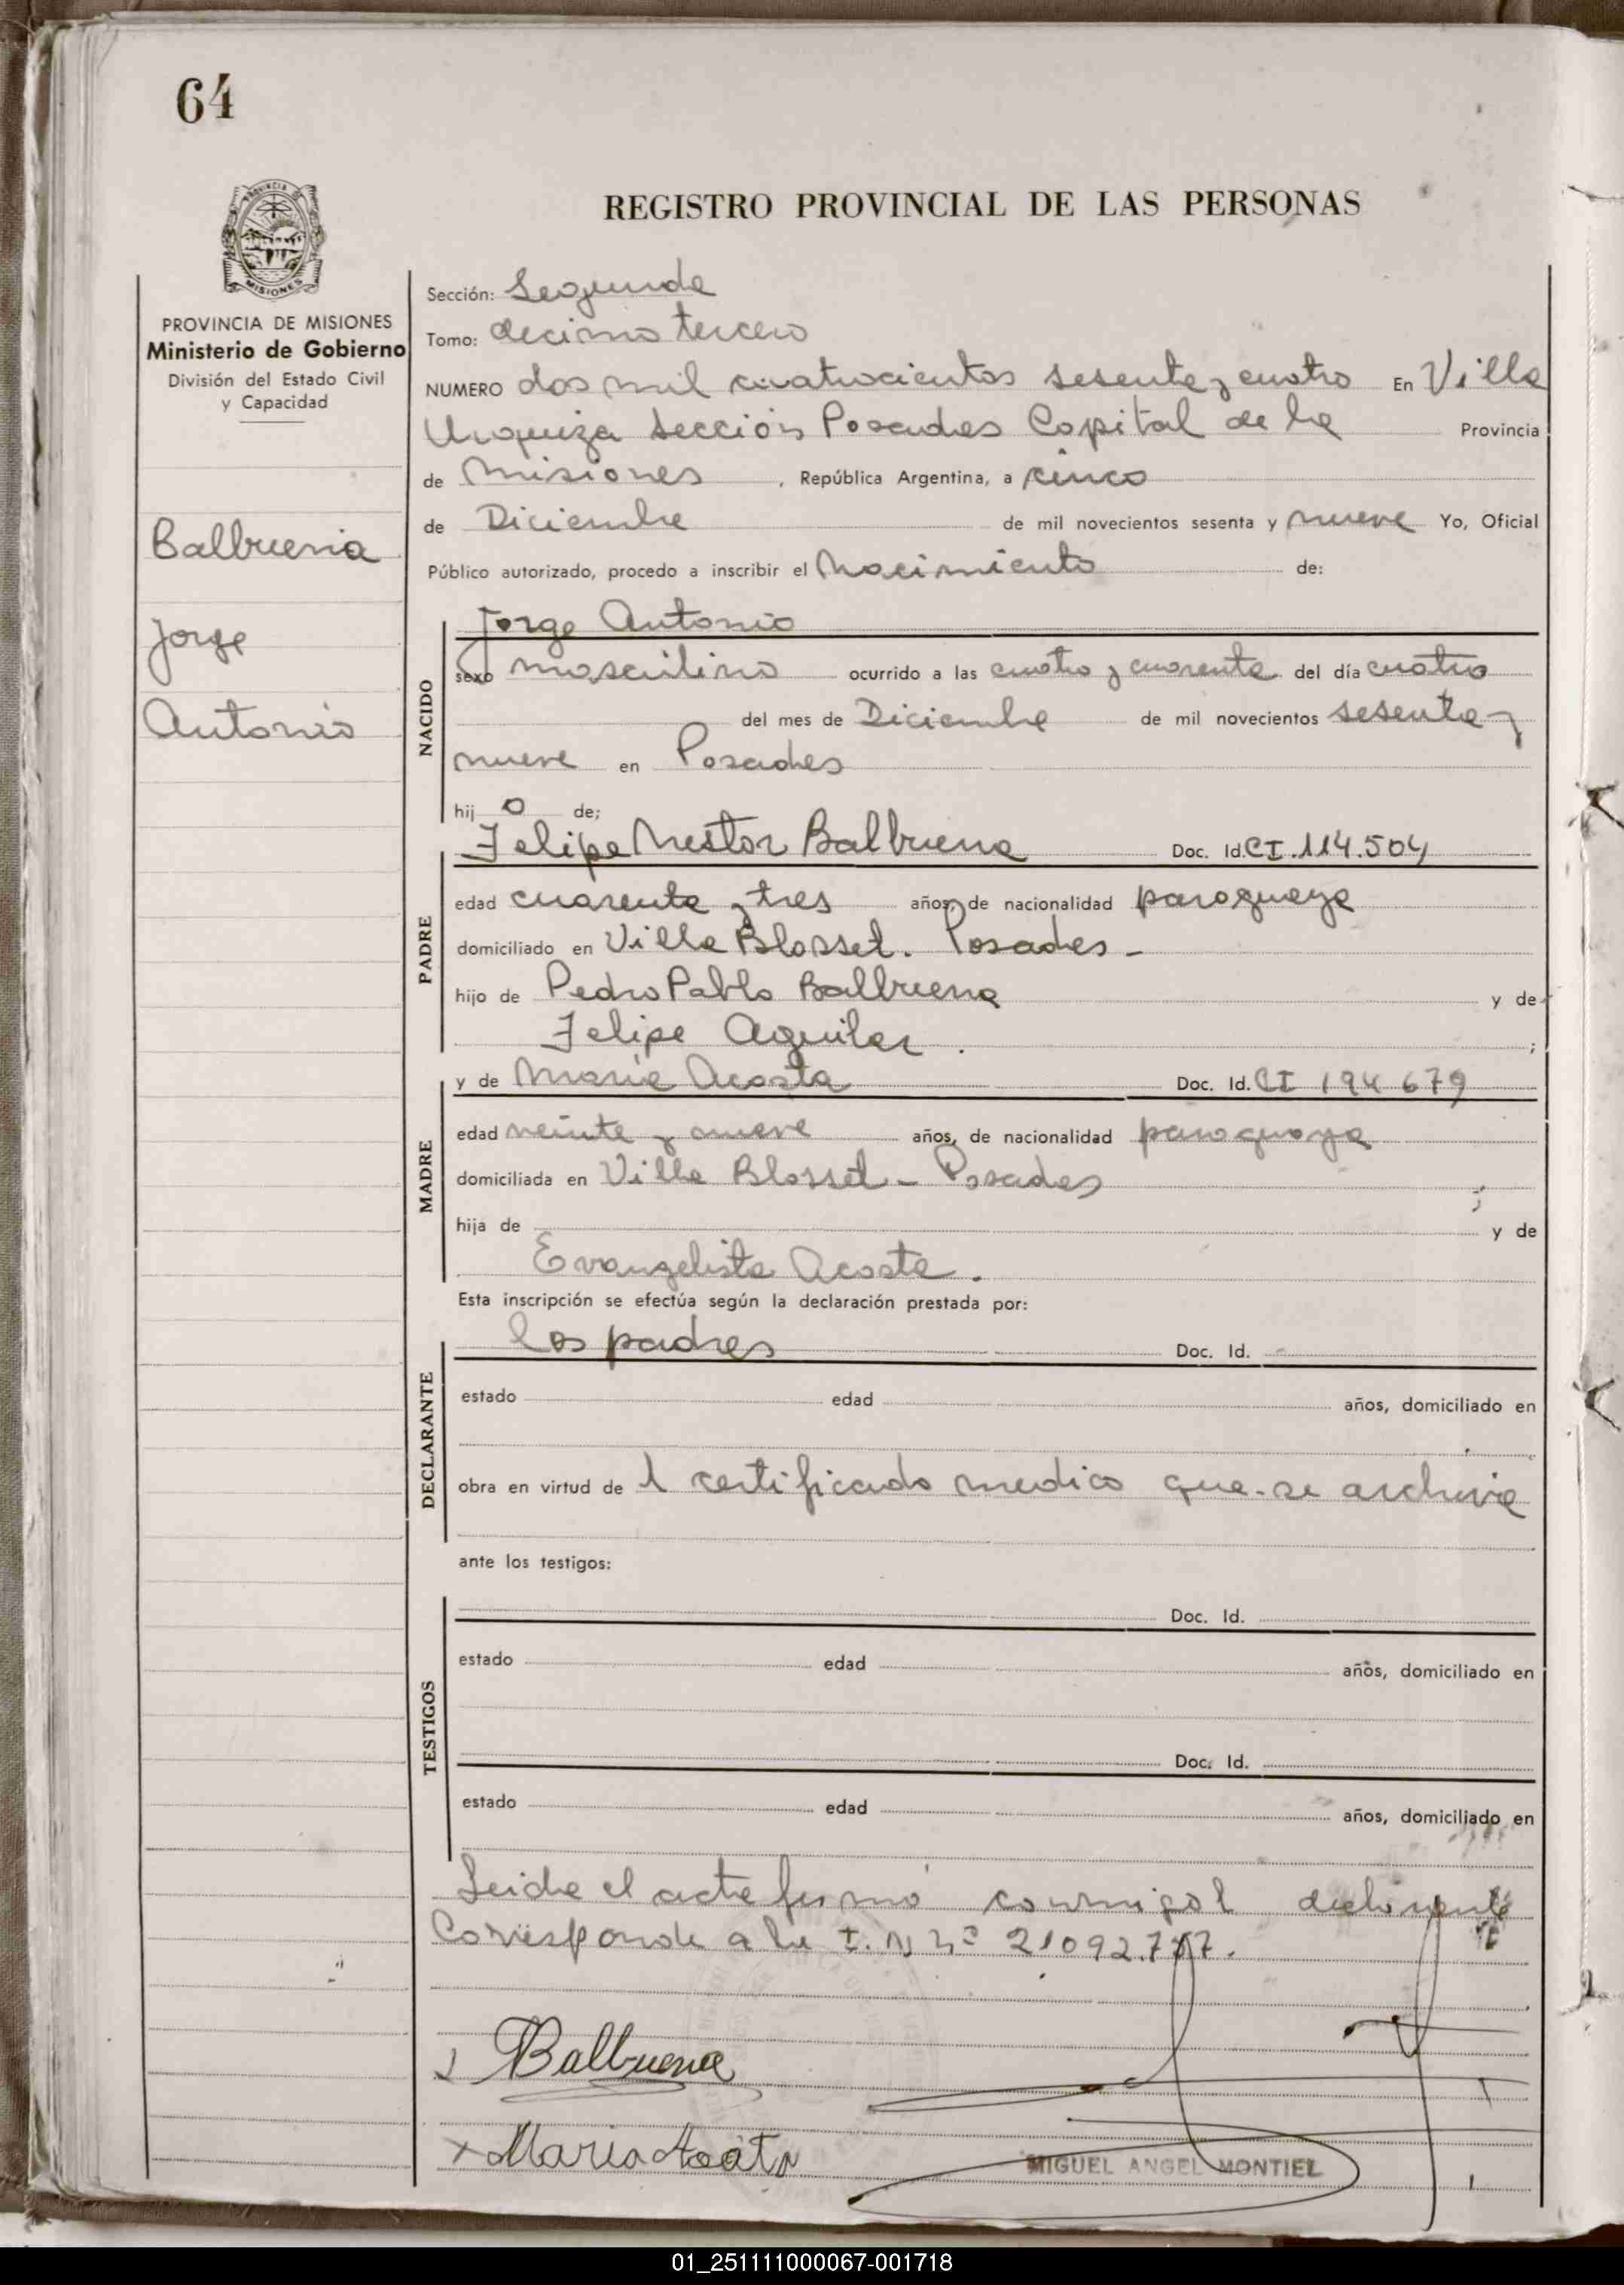 64
REGISTRO PROVINCIAL DE LAS PERSONAS
PROVINCIA DE MISIONES
MISIONES
PROVINCIA DE MISIONES
Ministerio de Gobierno
División del Estado Civil
y Capacidad
Balbuena
Jorge
Antonio
Sección: Segunda
Tomo: decimo tercero
NUMERO dos mil cuatrocientos sesenta y cuatro En Villa
Urquiza Sección Posadas Capital de la Provincia
de Misiones , República Argentina, a cinco
de Diciembre de mil novecientos sesenta y nueve Yo, Oficial
Público autorizado, procedo a inscribir el Nacimiento de:
NACIDO
Jorge Antonio
sexo masculino ocurrido a las cuatro y cuarenta del día cuatro
del mes de Diciembre de mil novecientos sesenta y
nueve en Posadas
hij o de;
PADRE
Felipe Nestor Balbuena Doc. Id. CI.114.504
edad cuarenta y tres años, de nacionalidad paraguaya
domiciliado en Villa Blosset. Posadas -
hijo de Pedro Pablo Balbuena y de
Felipa Aguilar . ;
MADRE
y de Maria Acosta Doc. Id. CI 194 679
edad veinte y nueve años, de nacionalidad paraguaya
domiciliada en Villa Blosset - Posadas ;
hija de y de
Evangelista Acosta .
Esta inscripción se efectúa según la declaración prestada por:
DECLARANTE
los padres Doc. Id.
estado edad años, domiciliado en
obra en virtud de l certificado medico que se archiva
ante los testigos:
TESTIGOS
Doc. Id.
estado edad años, domiciliado en
Doc. Id.
estado edad años, domiciliado en
Leida el acta firmó conmigo l
Corresponde a la I. N nº 21092.7
Balbuena
x Maria Acosta
MIGUEL ANGEL MONTIEL
01_251111000067-001718